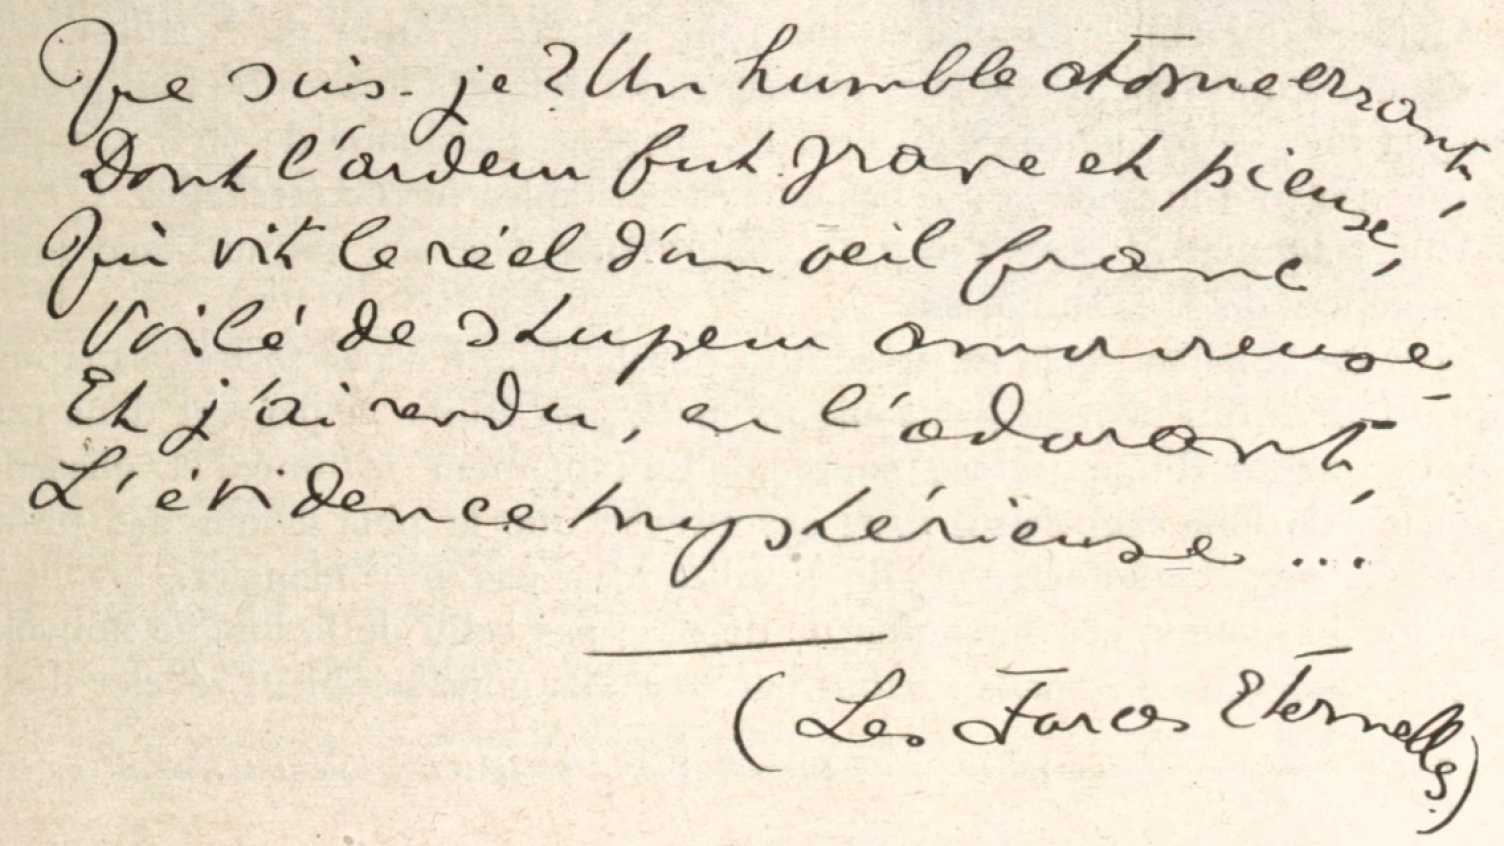 Que suis-je ? Un humble atome errant,
Dont l'ardeur fut grave et pieuse,
Qui vit le réel d'un œil franc
Voilé de stupeur amoureuse,
Et j'ai rendu, en l'adorant,
L'évidence mystérieuse ...
(Les Forces Eternelles)